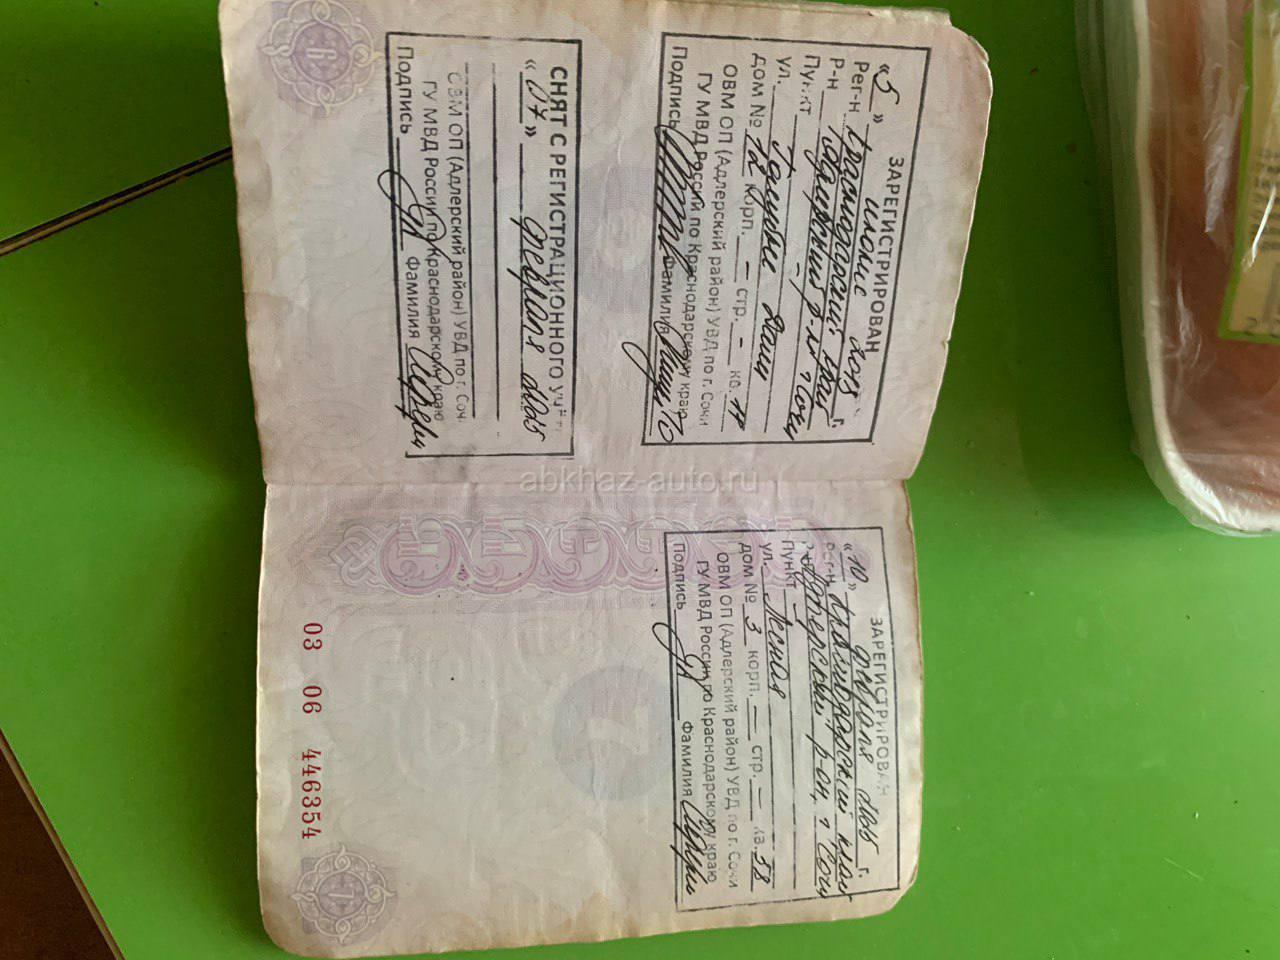 ЗАРЕГИСТРИРОВАН
«5» июня 2013 г.
Рег-н Краснодарский край
Р-н Адлерский р-н г Сочи
Пункт -
ул.
дом № 12 корп. – стр. – кв.
ОВМ ОП (Адлерский район) УВД по г. Сочи
ГУ МВД России по Краснодарскому краю
Подпись Фамилия
СНЯТ С РЕГИСТРАЦИОННОГО
«07» февраля 2015
ОВМ ОП (Адлерский район) УВД по г. Сочи
ГУ МВД России по Краснодарскому краю
Подпись Фамилия
6
abkhaz-auto.ru
ЗАРЕГИСТРИРОВАН
«10» февраля 2015 г.
Рег-н Краснодарский край
Р-н Адлерский р-он, г Сочи
Пункт –
ул. Лесная
дом № 3 корп. – стр. – кв. 58
ОВМ ОП (Адлерский район) УВД по г. Сочи
ГУ МВД России по Краснодарскому краю
Подпись Фамилия
7
7
03 06 446354